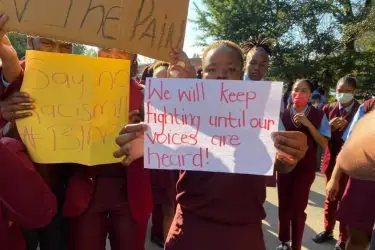 THE PAIN
Say no
Racism
We will keep
fighting until our
voices are
heard!